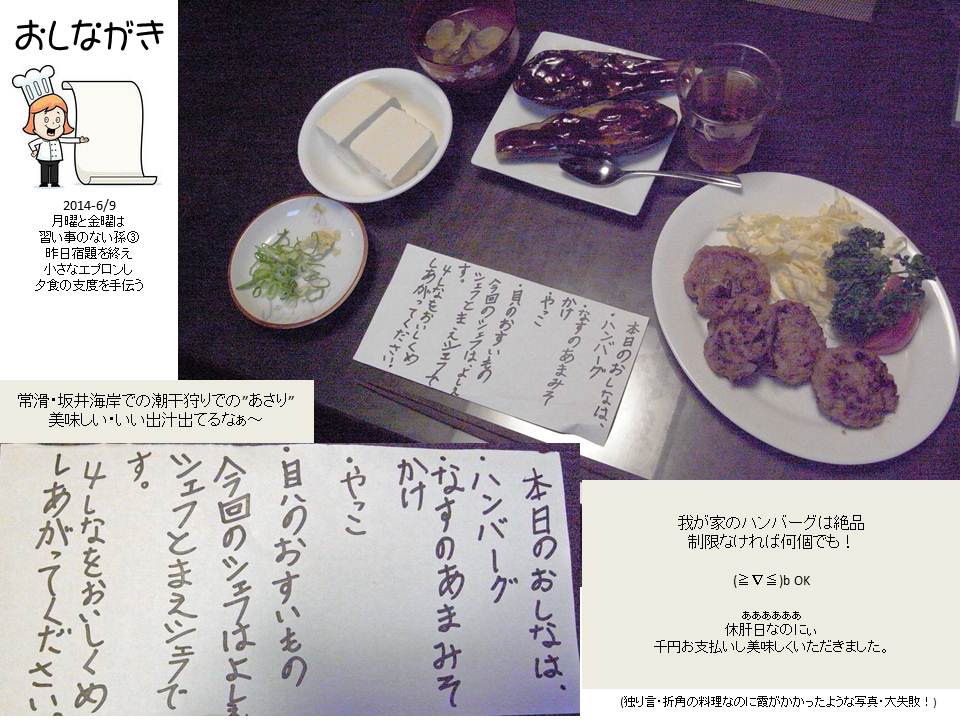 おしながき
2014-6/9
月曜と金曜は
習い事のない孫③
昨日宿題を終え
小さなエプロンし
夕食の支度を手伝う
本日のおしなは、
・ハンバーグ
・なすのあまみそ
かけ
・やっこ
・貝のおすいもの
今回のシェフは、よしえ
シェフとまえシェフで
す。
4しなをおいしくめ
しあがってください。
常滑・坂井海岸での潮干狩りでの"あさり"
美味しい・いい出汁出てるなぁ～
本日のおしなは、
・ハンバーグ
・なすのあまみそ
かけ
・やっこ
・貝のおすいもの
今回のシェフはよし
シェフとまえシェフで
す。
4しなをおいしくめ
しあがってください。
我が家のハンバーグは絶品
制限なければ何個でも！
(≧∇≦)b OK
ぁぁぁぁぁぁ
休肝日なのにぃ
千円お支払いし美味しくいただきました。
(独り言・折角の料理なのに霞がかかったような写真・大失敗！)